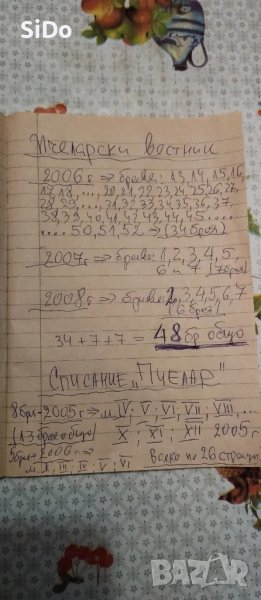 SiDo
Пчеларски вестник
2006г ⇒ броеве: 13,14,15,16,
17,18,..., 20,21,22,23,24,25,26,27,
28,29,..., 31,32,33,34,35,36,37,
38,39,40,41,42,43,44,45....
.... 50,51,52 → (34 броя)
2007г ⇒ броеве: 1,2,3,4,5,
6 и 7 (7 броя)
2008г ⇒ броеве: 2,3,4,5,6,7
(6 броя)
34+7+7 = 48 бр общо
Списание „Пчелар"
8 бр - 2005г ⇒ м. IV; V; VI; VII; VIII,...
(13 броя общо) X; XI; XII 2005г
5 бр - 2006г ⇒
V, VI всяко по 26 страници
BAZAR